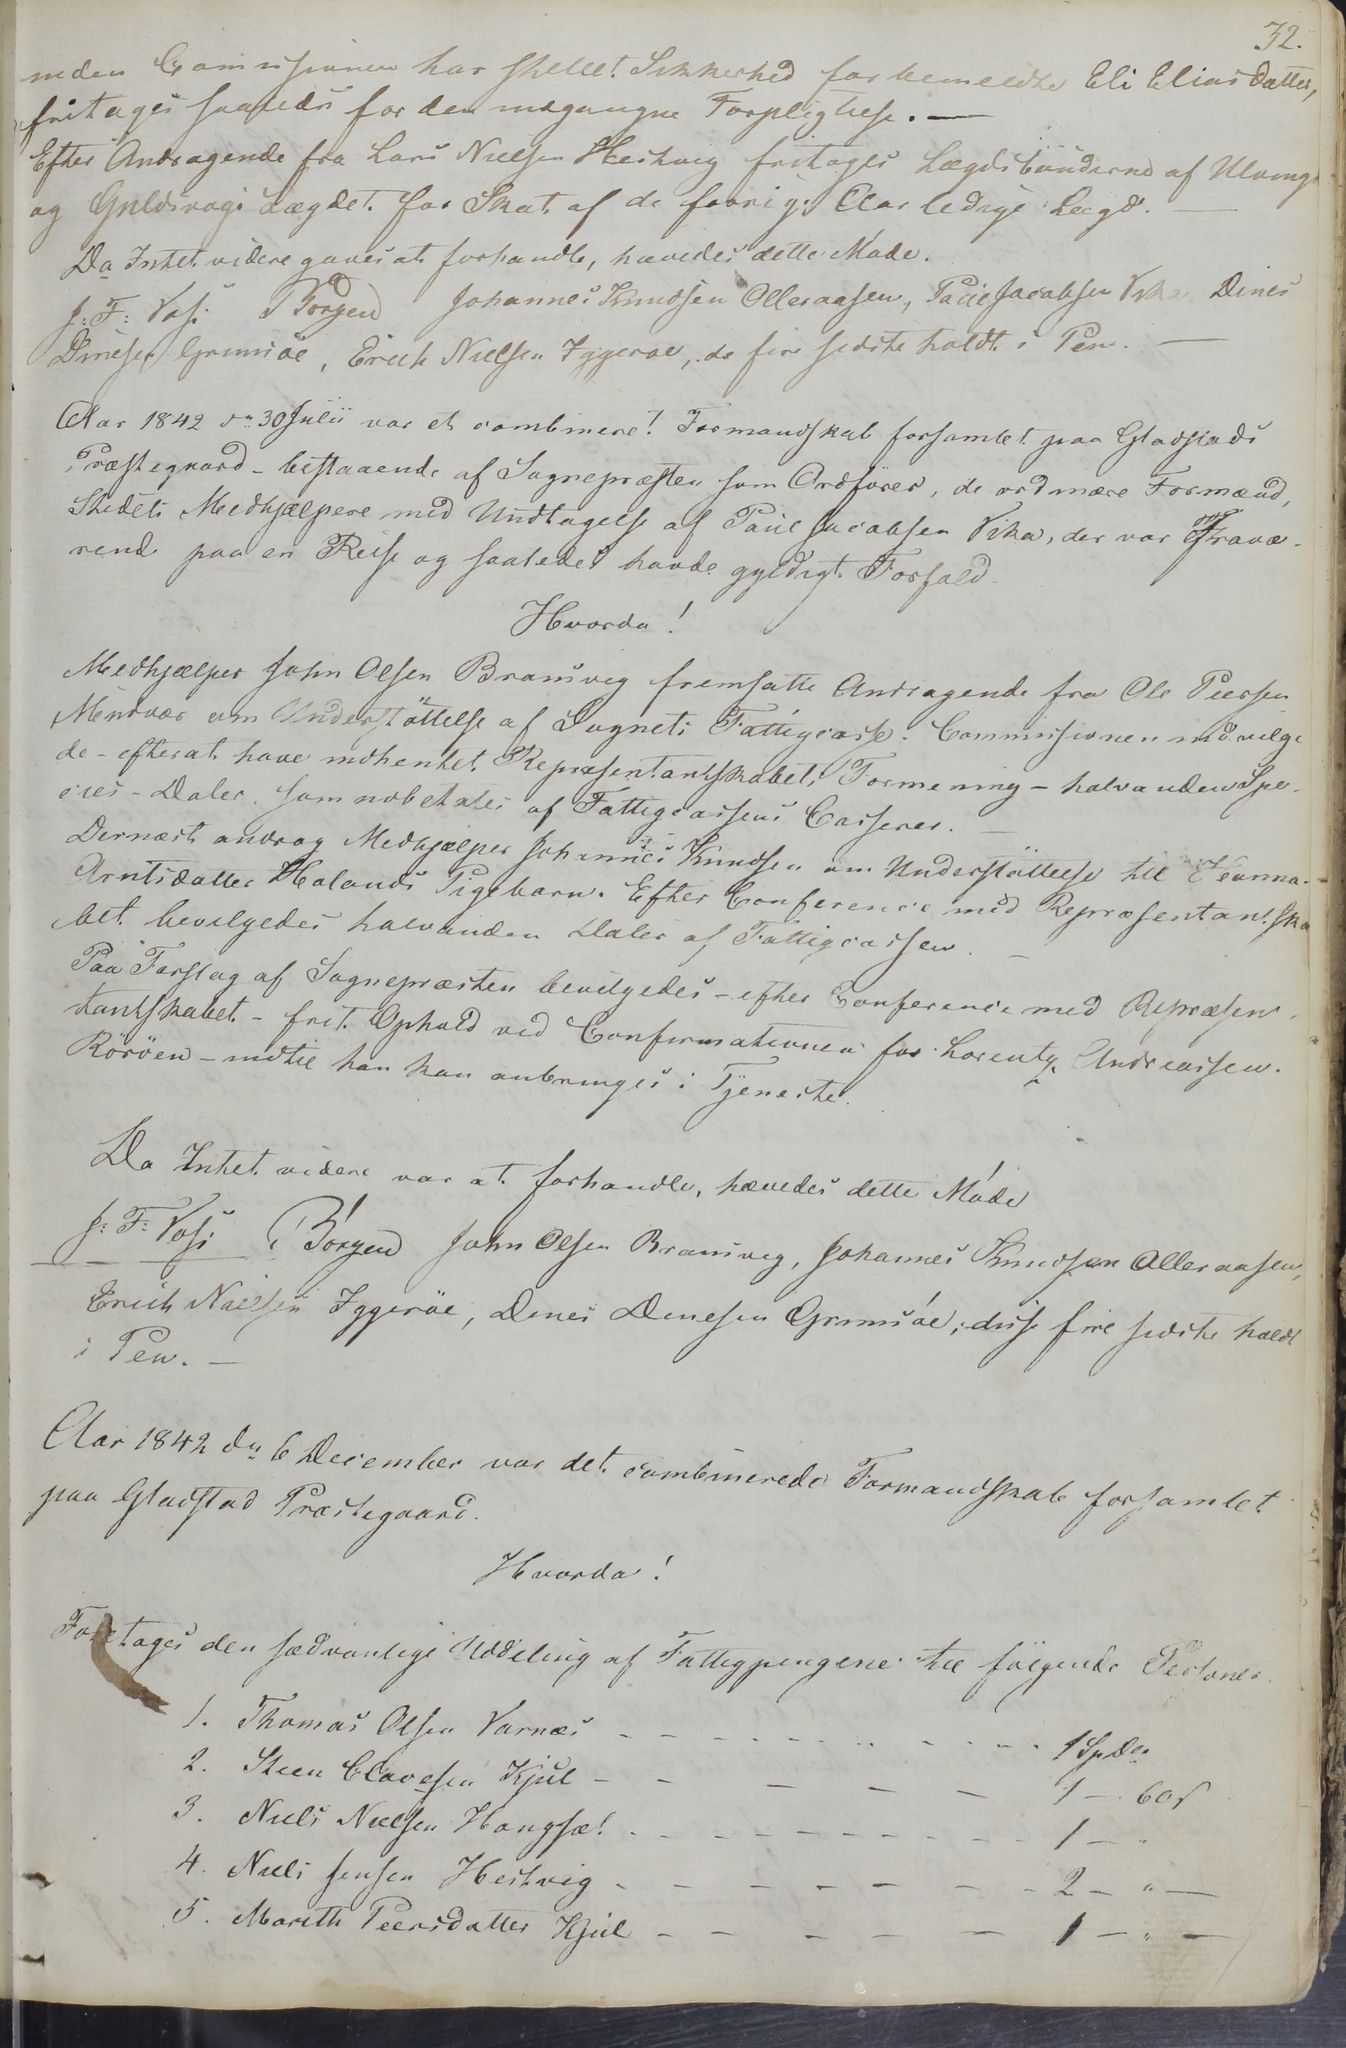 32.
inden Commissionen har stillet Sikkerhed for bemeldte Eli Eliasdatter,
fritages saaledes for den indgangne Forpligtelse. —
Efter Andragende fra Lars Nielsen Hestvig fritages Lægdsbønderne af Ulvinge
og Guldsvogs Lægdet for Skat af de forrige Aar ledige Lægd. —
Da Intet videre gaves at forhandle, hævedes dette Møde.
J: F: Voss Borgen Johannes Knudsen Olleraasen, Paul Jacobsen Vika Dines
Dinesen Grimsøe, Erich Nielsen Iggerøe, de fire sidste holdt i Pen. —
Aar 1842 dn 30 Julii var et combineret Formandskab forsamlet paa Gladstads
Præstegaard – bestaaende af Sognepræsten som Ordfører, de ordinære Formænd,
Stedets Medhjælpere med Undtagelse af Paul Jacobsen Vika, der var Fravæ-
rende paa en Reise og saaledes havde gyldigt Forfald.
Hvorda!
Medhjælper John Olsen Bramsvig fremsatte Andragende fra Ole Peersen
Mindvær om Understöttelse af Sognets Fattigcasse. Commissionen indvilge
de – efterat have indhentet Repræsentantskabets Formening – halvanden Spe-
cies-Daler, som udbetales af Fattigcassens Casserer. —
Dernæst androg Medhjælper Johannes Knudsen om Understöttelse til Hanna
Arntsdatter Holands Pigebarn. Efter Conference med Repræsentantska
bet bevilgedes halvanden Daler af Fattigcassen. —
Paa Forslag af Sognepræsten bevilgedes – efter Conference med Repræsen-
tantskabet – frit Ophold ved Confirmationen for Lorentz Andreassen
Rörøen – indtil han kan anbringes i Tjeneste.
Da Intet videre var at forhandle, hævedes dette Møde
J: F: Voss Borgen John Olsen Bramsvig, Johannes Knudsen Olleraasen,
Erich Nielsen Iggerøe, Dines Dinesen Grimsøe; disse fire sidste holdt
i Pen. —
Aar 1842 dn 6 December var det combinerede Formandskab forsamlet
paa Gladstad Præstegaard.
Hvorda!
Foretages den sædvanlige Uddeling af Fattigpengene til følgende Personer.
1. Thomas Olsen Varnæs - - - - - - - - 1 Spdlr
2. Steen Clavesen Kjul - - - - - 1 — 60 s
3. Niels Nielsen Hongsæt - - - - - - - - 1 — "
4. Niels Jensen Hestvig - - - - - - - 2 — " —
5. Marith Peersdatter Kjul - - - - - 1 — " —